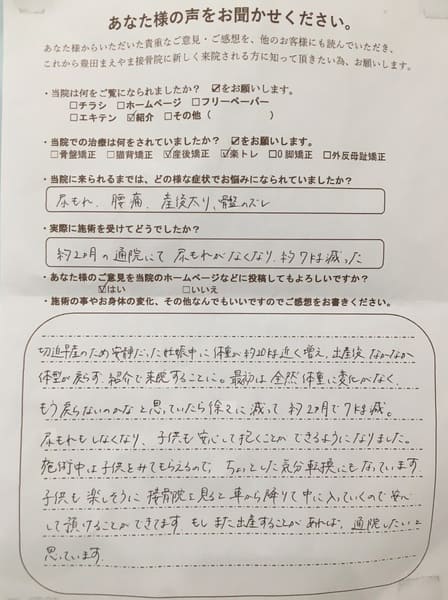 あなた様の声をお聞かせください。
あなた様からいただいた貴重なご意見・ご感想を、他のお客様にも読んでいただき、
これから豊田まえやま接骨院に新しく来院される方に知って頂きたい為、お願いします。
・当院は何をご覧になられましたか？ ☑をお願いします。
□チラシ □ホームページ □フリーペーパー
□エキテン ☑紹介 □その他（ ）
・当院での治療は何をされていましたか？ ☑をお願いします。
□骨盤矯正 □猫背矯正 ☑産後矯正 ☑楽トレ □O脚矯正 □外反母趾矯正
・当院に来られるまでは、どの様な症状でお悩みになられていましたか？
尿もれ、腰痛、産後太り、骨盤のズレ
・実際に施術を受けてどうでしたか？
約2ヶ月の通院にて 尿もれがなくなり、約7kg減った
・あなた様のご意見を当院のホームページなどに投稿してもよろしいですか？
☑はい □いいえ
・施術の事やお身体の変化、その他なんでもいいですのでご感想をお書きください。
切迫早産のため安静だった妊娠中に体重が約20kg近く増え、出産後なかなか
体型が戻らず、紹介で来院することに。最初は全然体重に変化がなく、
もう戻らないのかなと思っていたら徐々に減って約2ヶ月で7kg減。
尿もれもしなくなり、子供も安心して抱くことができるようになりました。
施術中は子供をみてもらえるので、ちょっとした気分転換にもなっています。
子供も楽しそうに接骨院を見ると車から降りて中に入っていくので安心
して預けることができてます。もしまた出産することがあれば、通院したいと
思っています。